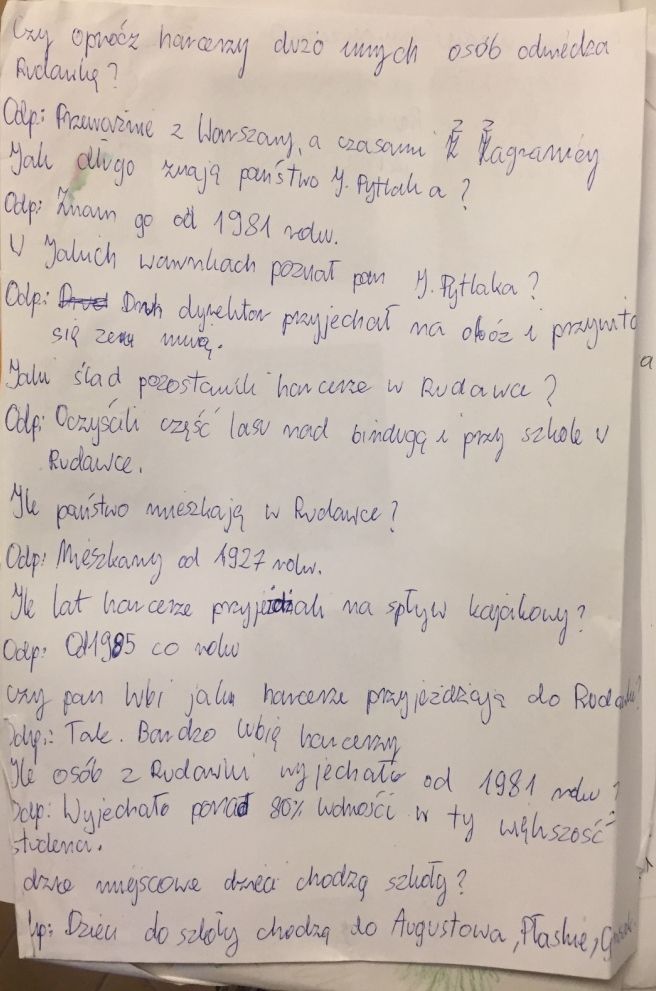 Czy oprócz harcerzy dużo innych osób odwiedza
Rudawkę?
Odp: Przeważnie z Warszawy, a czasami z zagranicy
Jak długo znają państwo J. Pytlaka?
Odp: Znam go od 1981 roku.
W Jakich warunkach poznał pan J. Pytlaka?
Odp: Druh dyrektor przyjechał na obóz i przywitał
się ze mną.
Jaki ślad pozostawili harcerze w Rudawce?
Odp: Oczyścili część lasu nad bindugą i przy szkole w
Rudawce.
Ile państwo mieszkają w Rudawce?
Odp: Mieszkamy od 1927 roku.
Ile lat harcerze przyjeżdżali na spływ kajakowy?
Odp: Od 1985 co roku
Czy pan lubi jak harcerze przyjeżdżają do Rudawki?
Odp: Tak. Bardzo lubię harcerzy
Ile osób z Rudawki wyjechało od 1981 roku?
Odp: Wyjechało ponad 80% ludności w tym większość
studenci.
dzie miejscowe dzieci chodzą szkoły?
Odp: Dzieci do szkoły chodzą do Augustowa, Płaskie,